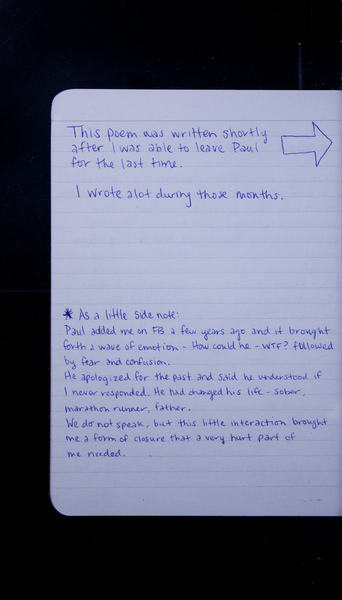 This poem was written shortly
after I was able to leave Paul
for the last time.
I wrote alot during those months.
* As a little side note:
Paul added me on FB a few years ago and it brought
forth a wave of emotion - How could he - WTF? followed
by fear and confusion.
He apologized for the past and said he understood if
I never responded. He had changed his life - sober,
marathon runner, father.
We do not speak, but this little interaction brought
me a form of closure that a very hurt part of
me needed.